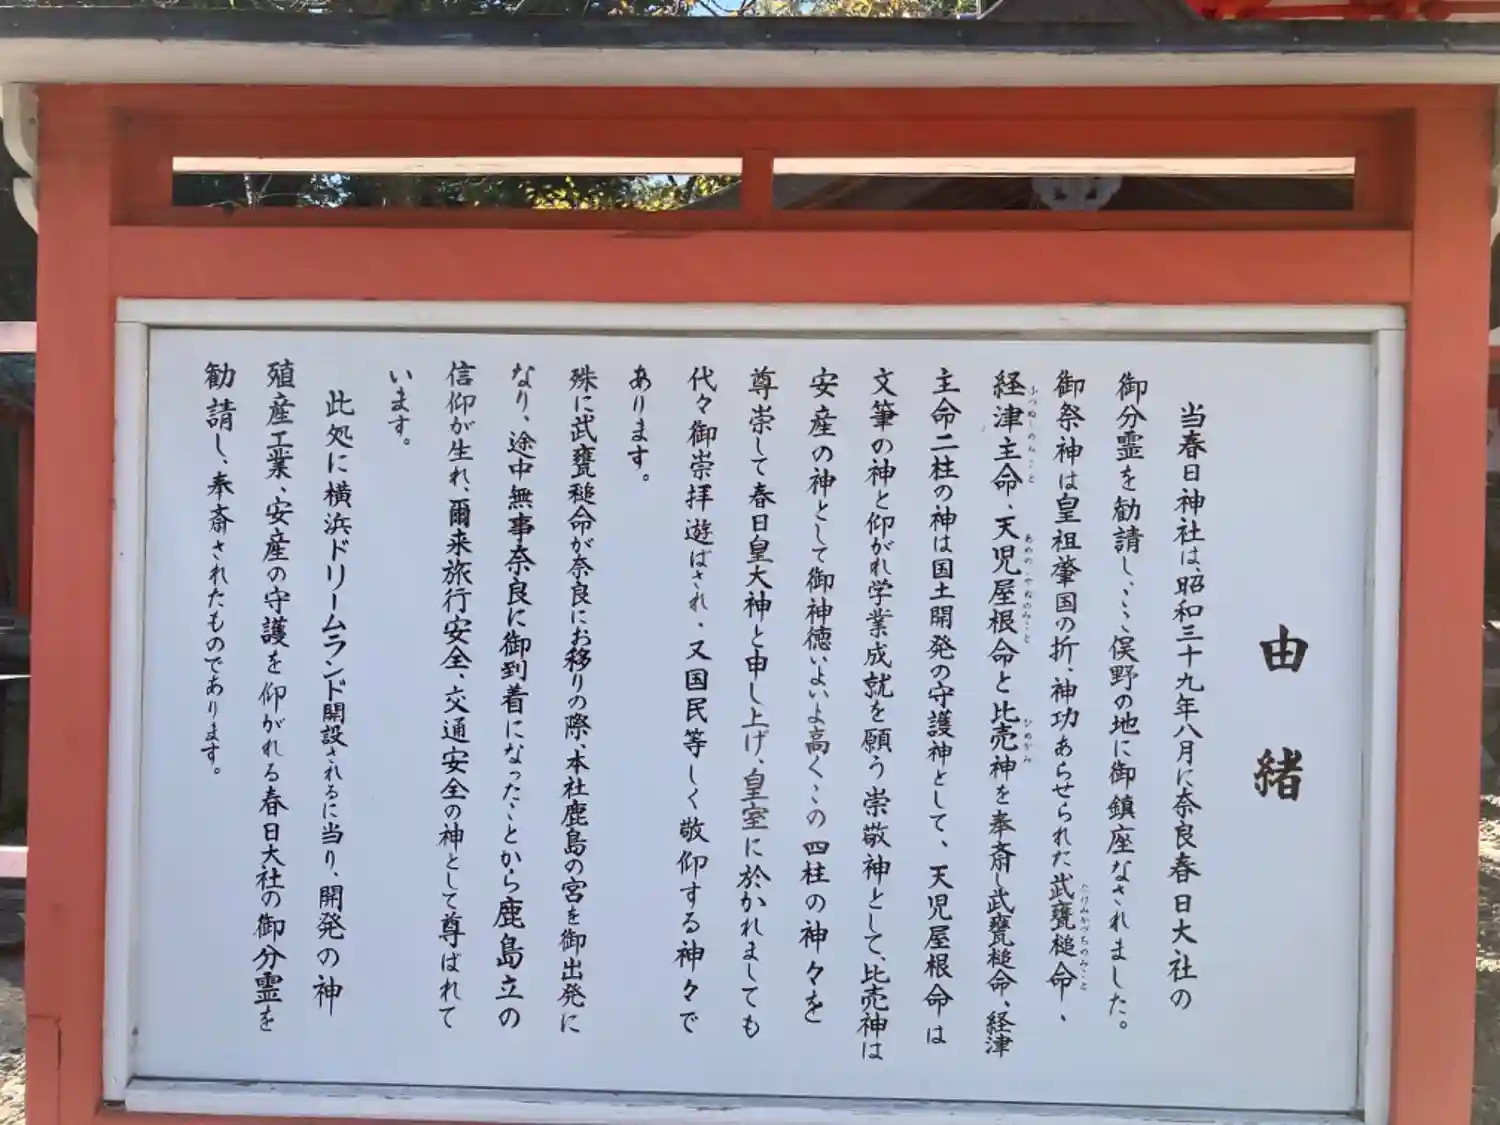 由緒
当春日神社は、昭和三十九年八月に奈良春日大社の
御分霊を勧請し、ここ俣野の地に御鎮座なされました。
御祭神は皇祖肇国の折、神功あらせられた武甕槌命、
たけみかづちのみこと
経津主命、天児屋根命と比売神を奉斎し武甕槌命、経津
ふつぬしのみこと
あめのこやねのみこと
ひめがみ
主命二柱の神は国土開発の守護神として、天児屋根命は
文筆の神と仰がれ学業成就を願う崇敬神として、比売神は
安産の神として御神徳いよいよ高くこの四柱の神々を
尊崇して春日皇大神と申し上げ、皇室に於かれましても
代々御崇拝遊ばされ、又国民等しく敬仰する神々で
あります。
殊に武甕槌命が奈良にお移りの際、本社鹿島の宮を御出発に
なり、途中無事奈良に御到着になったことから鹿島立の
信仰が生れ、爾来旅行安全、交通安全の神として尊ばれて
います。
此処に横浜ドリームランド開設されるに当り、開発の神
殖産工業、安産の守護を仰がれる春日大社の御分霊を
勧請し、奉斎されたものであります。